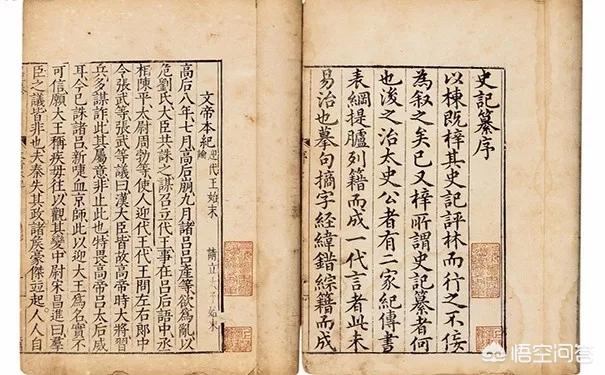 史記纂序
以棟既梓其史記評林而行之不佞
為叙之矣已又梓所謂史記纂者何
也後之治太史公者有二家紀傳書
表綱提臚列籍而成一代言者此未
易治也摹句摘字經緯錯綜籍而成
文帝本紀 迎代王始末
高后八年七月高后崩九月諸呂呂產等欲為亂以
危劉氏大臣共誅之謀召立代王事在呂后語中丞
相陳平太尉周勃等使人迎代王代王問左右郎中
令張武等張武等議曰漢大臣皆故高帝時大將習
兵多謀詐此其屬意非止此也特畏高帝呂太后威
耳今已誅諸呂新啑血京師此以迎大王為名實不
可信願大王稱疾毋往以觀其變中尉宋昌進曰羣
臣之議皆非也夫秦失其政諸侯豪傑竝起人人自
悟空问答